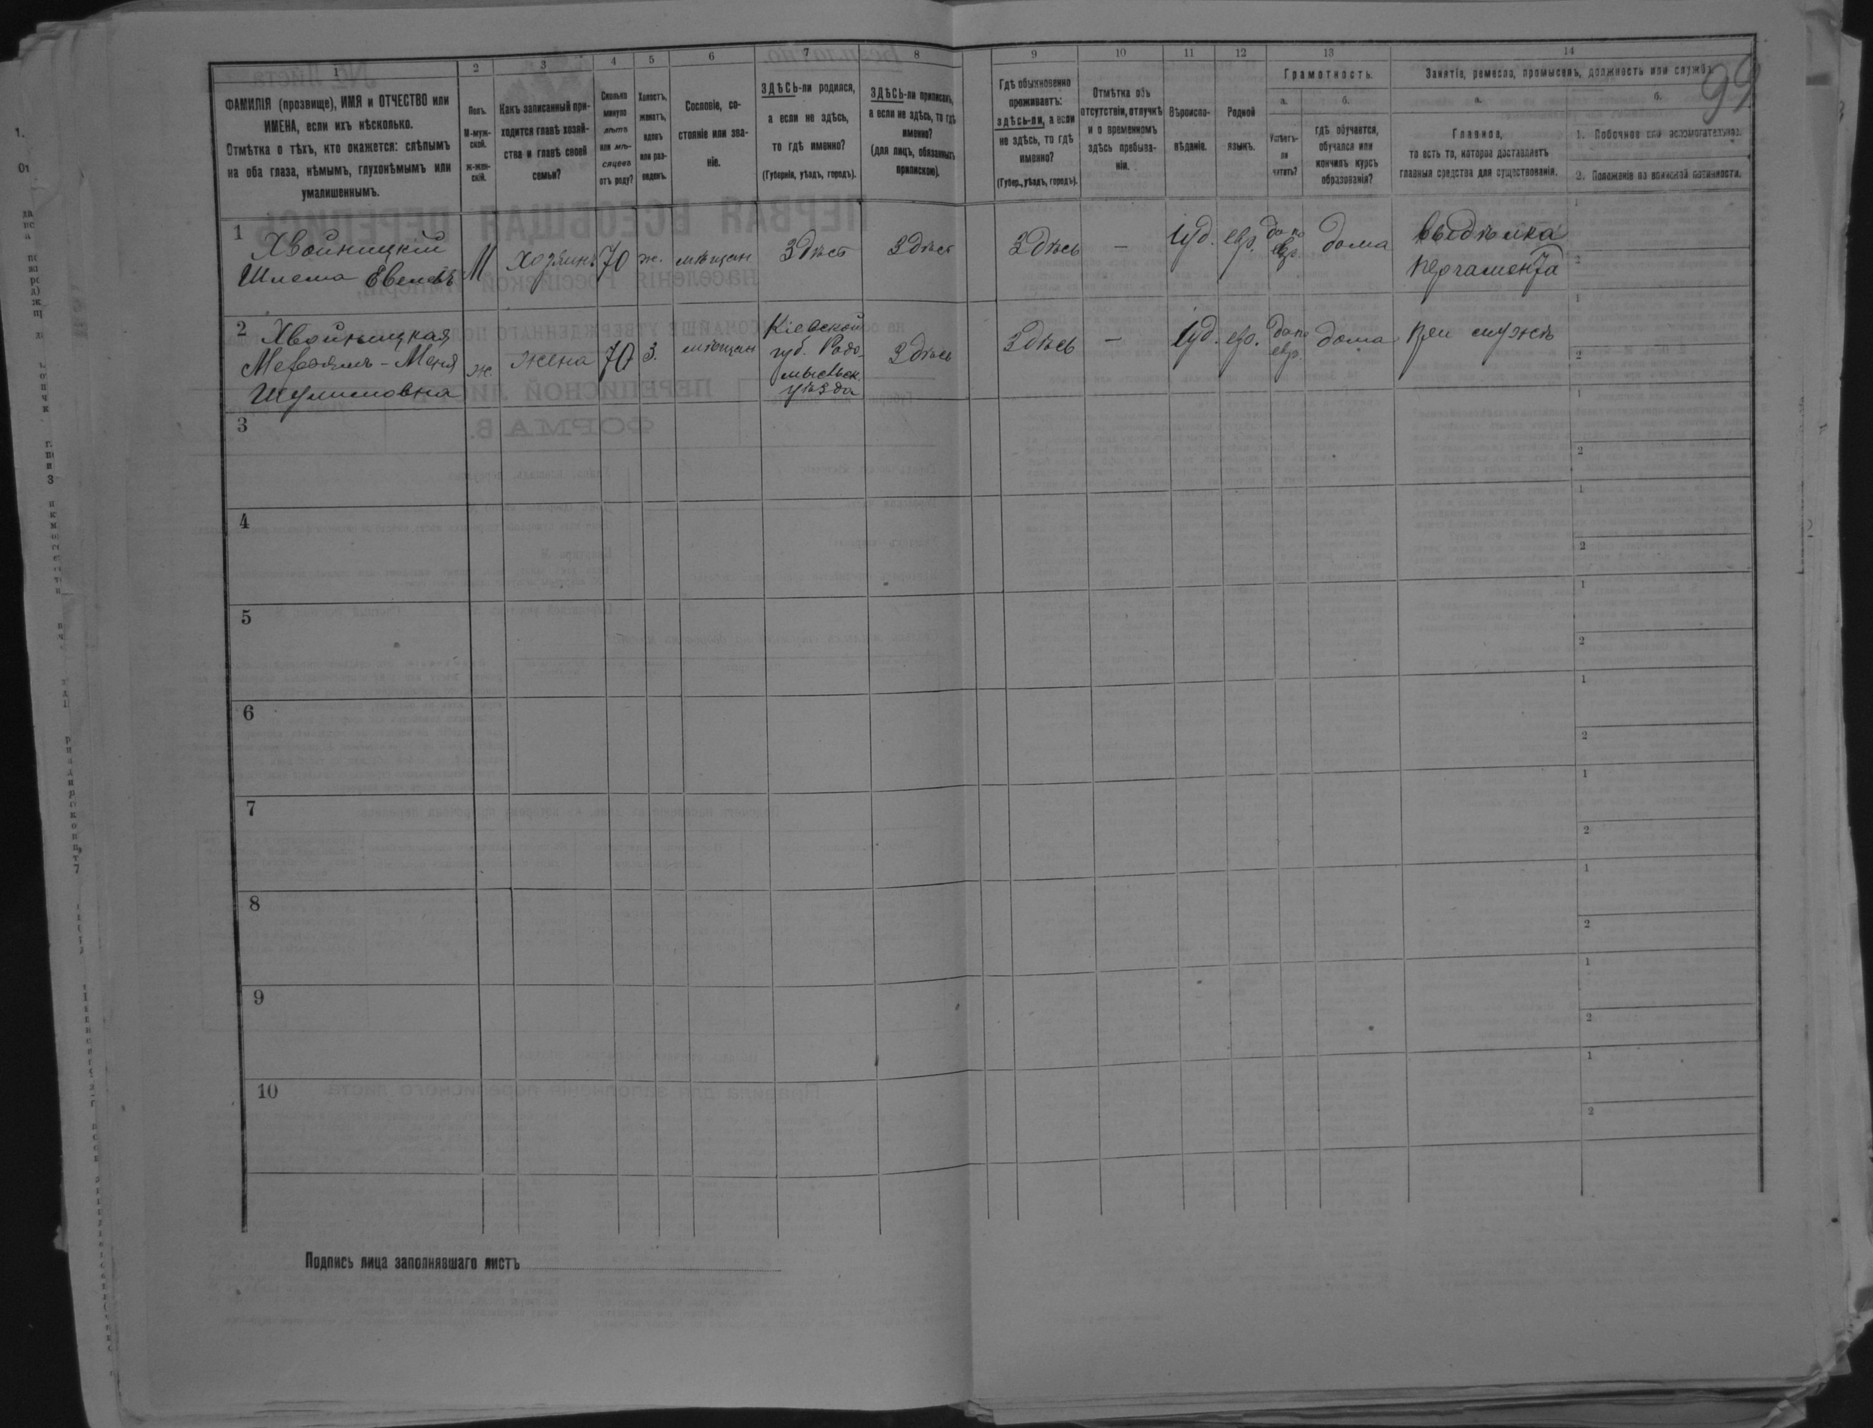 99
1
2
3
4
5
6
7
8
9
10
11
12
13
14
ФАМИЛІЯ (прозвище), ИМЯ и ОТЧЕСТВО или
ИМЕНА, если ихъ нѣсколько.
Отмѣтка о тѣхъ, кто окажется: слѣпымъ
на оба глаза, нѣмымъ, глухонѣмымъ или
умалишеннымъ.
Полъ.
М-муж-
ской.
ж-жен-
скій.
Какъ записанный при-
ходится главѣ хозяй-
ства и главѣ своей
семьи?
Сколько
минуло
лѣтъ
или мѣ-
сяцевъ
отъ роду?
Холостъ,
женатъ,
вдовъ
или раз-
веденъ.
Сословіе, со-
стояніе или зва-
ніе.
ЗДѢСЬ-ли родился,
а если не здѣсь,
то гдѣ именно?
(Губернія, уѣздъ, городъ).
ЗДѢСЬ-ли приписанъ,
а если не здѣсь, то гдѣ
именно?
(для лицъ, обязанныхъ
припискою).
Гдѣ обыкновенно
проживаетъ:
здѣсь-ли, а если
не здѣсь, то гдѣ
именно?
(Губер., уѣздъ, городъ).
Отмѣтка объ
отсутствіи, отлучкѣ
и о временномъ
здѣсь пребыва-
ніи.
Вѣроиспо-
вѣданіе.
Родной
языкъ.
Грамотность.
а.
Умѣетъ-
ли
читать?
б.
гдѣ обучается,
обучался или
кончилъ курсъ
образованія?
Занятіе, ремесло, промыселъ, должность или служба.
а.
Главное,
то есть то, которое доставляетъ
главныя средства для существованія.
б.
1. Побочное или вспомогательное.
2. Положеніе по воинской повинности.
1
Хвойницкій
Шлема Евелевъ
М
хозяинъ
70
ж.
мѣщан
Здѣсь
Здѣсь
Здѣсь
—
Іуд.
евр.
да по
евр.
дома
выдѣлка
пергамента
2
Хвойницкая
Меня
Шулимовна
ж
жена
70
З.
мѣщан
Кіевской
губ. Радо
мысльск.
уѣзда
Здѣсь
Здѣсь
—
Іуд.
евр.
да по
евр.
дома
при мужѣ
3
4
5
6
7
8
9
10
Подпись лица заполнявшаго листъ